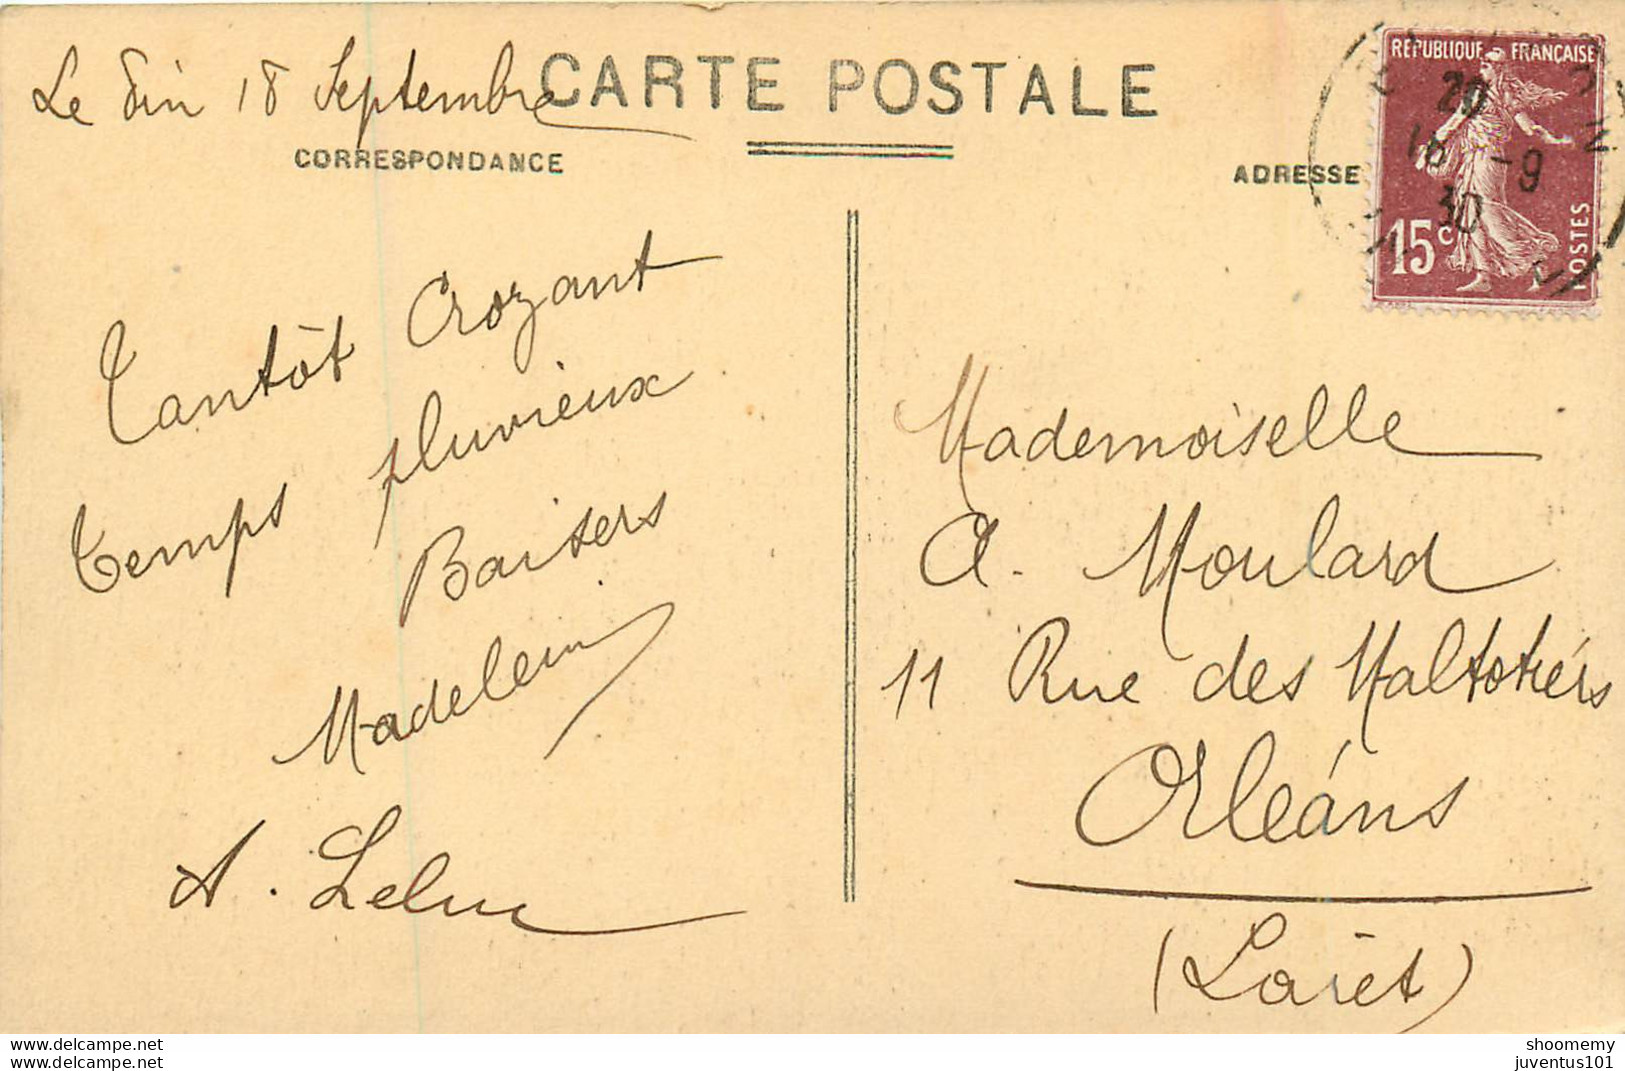 Le Pin 18 Septembre
CARTE POSTALE
CORRESPONDANCE
ADRESSE
REPUBLIQUE FRANÇAISE
20
18 -9
30
15c
POSTES
Tantôt Crozant
Temps pluvieux
Baisers
Madeleine
A. Leluc
Mademoiselle
A. Moulard
11 Rue des Maltotiers
Orléans
(Loiret)
www.delcampe.net
www.delcampe.net
shoomemy
juventus101